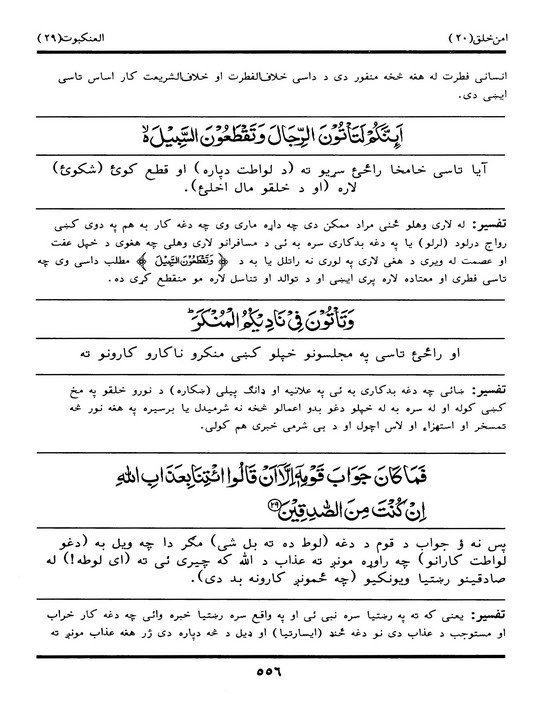 امن خلق (٢٠) العنكبوت (٢٩)
انساني فطرت له هغه څخه منفور دی د داسی خلاف‌الفطرت او خلاف‌الشریعت کار اساس تاسی
ایښی دی.
اَئِنَّكُمْ لَتَأْتُوْنَ الرِّجَالَ وَتَقْطَعُوْنَ السَّبِيْلَ ۙ
آیا تاسی خامخا راځئ سړیو ته (د لواطت دپاره) او قطع کوئ (شکوئ)
لاره (او د خلقو مال اخلئ).
تفسیر: له لاری وهلو ځنی مراد ممکن دی چه داړه ماری وی چه دغه کار به هم په دوی کښی
رواج درلود (لرلو) یا په دغه بدکاری سره به ئی د مسافرانو لاری وهلی چه هغوی د خپل عفت
او عصمت له ویری د هغی لاری په لوری نه راتلل یا به د ﴿ وَتَقْطَعُوْنَ السَّبِيْلَ ﴾ مطلب داسی وی چه
تاسی فطری او معتاده لاره پری ایښی او د توالد او تناسل لاره مو منقطع کړی ده.
وَتَأْتُوْنَ فِيْ نَادِيْكُمُ الْمُنْكَرَ ؕ
او راځئ تاسی په مجلسونو خپلو کښی منکرو ناکارو کارونو ته
تفسیر: ښائی چه دغه بدکاری به ئی په علانیه او ډانگ پیلی (ښکاره) د نورو خلقو په مخ
کښی کوله او له سره به له خپلو دغو بدو اعمالو څخه نه شرمیدل یا برسیره په هغه نور څه
تمسخر او استهزاء او لاس اچول او د بی شرمی خبری هم کولی.
فَمَا كَانَ جَوَابَ قَوْمِهٖٓ اِلَّآ اَنْ قَالُوا ائْتِنَا بِعَذَابِ اللّٰهِ
اِنْ كُنْتَ مِنَ الصّٰدِقِيْنَ ﴿٢٩﴾
پس نه ؤ جواب د قوم د دغه (لوط ده ته بل شی) مگر دا چه ویل به (دغو
لواطت کارانو) چه راوړه مونږ ته عذاب د الله که چیری ئی ته (ای لوطه!) له
صادقینو رښتیا ویونکیو (چه ځمونږ کارونه بد دی).
تفسیر: یعنی که ته په رښتیا سره نبی ئی او په واقع سره رښتیا خبره وائی چه دغه کار خراب
او مستوجب د عذاب دی نو دغه ځنډ (ایسارتیا) او ډیل د څه دپاره دی ژر هغه عذاب مونږ ته
٥٥٦